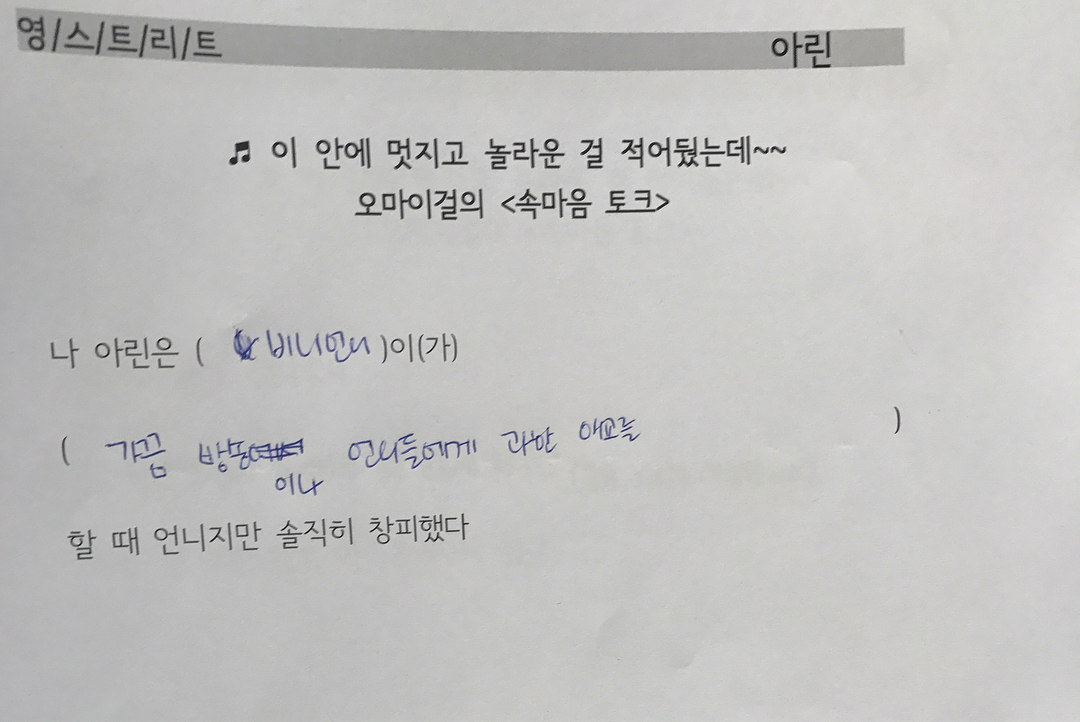 영/스/트/리/트 아린
♬ 이 안에 멋지고 놀라운 걸 적어뒀는데~~
오마이걸의 <속마음 토크>
나 아린은 ( 비니언니 )이(가)
( 가끔 방송 언니들에게 과한 애교를 )
이나
할 때 언니지만 솔직히 창피했다